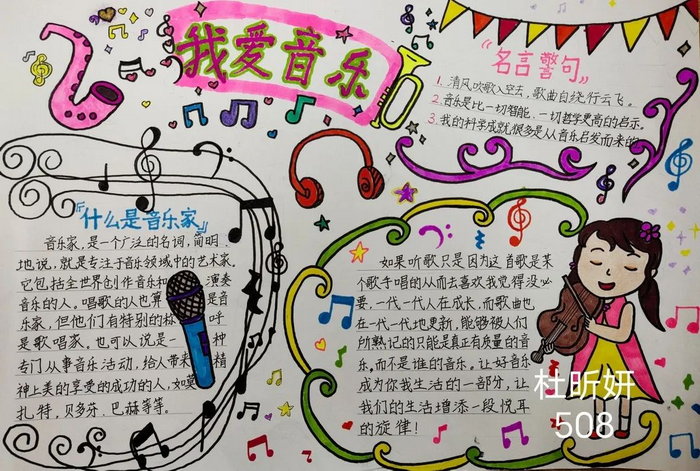 我爱音乐
“名言警句”
1. 清风吹歌入空去,歌曲自绕行云飞。
2. 音乐是比一切智能、一切哲学更高的启示。
3. 我的科学成就很多是从音乐启发而来的
『什么是音乐家』
音乐家,是一个广泛的名词,简明
地说,就是专注于音乐领域中的艺术家,
它包括全世界创作音乐和 演奏
音乐的人。唱歌的人也算 是音
乐家,但他们有特别的称 呼
是歌唱家。也可以说是一 种
专门从事音乐活动,给人带来 精
神上美的享受的成功的人,如莫
扎特,贝多芬、巴赫等等。
如果听歌只是因为这首歌是某
个歌手唱的从而去喜欢我觉得没必
要,一代一代人在成长,而歌曲也
在一代一代地更新,能够被人们
所熟记的只能是真正有质量的音
乐。而不是谁的音乐。让好音乐
成为你我生活的一部分,让
我们的生活增添一段悦耳
的旋律!
杜昕妍
508